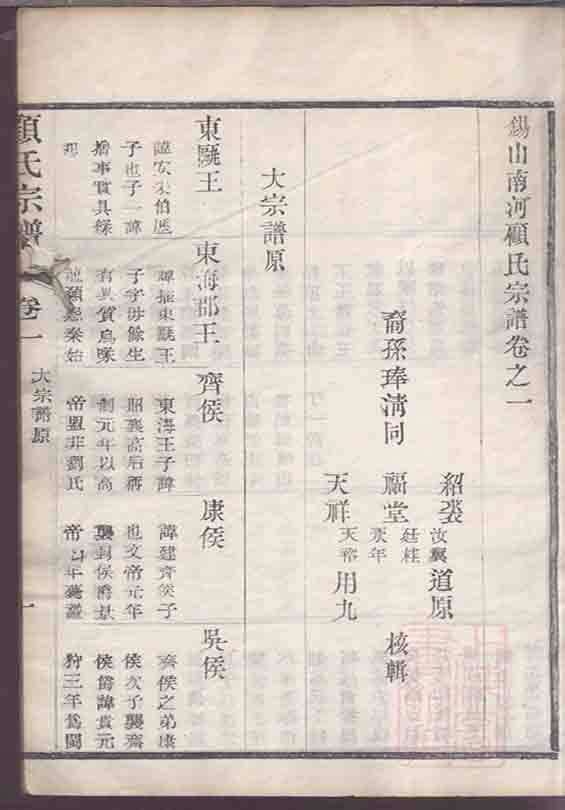 錫山南河顧氏宗譜卷之一
裔孫琫淸同
紹裘 福堂 天祥
汝翼 廷桂 永年 天裕
道原 用九
核輯
大宗譜原
東甌王
諱安朱伯歷
子也子一諱
搖事實具
東海郡王
諱搖東甌王
子子毋餘生
有異質烏喙
龍顏
秦始
齊侯
東海王子諱
昭襄高后
制元年以高
帝盟非劉氏
康侯
諱建齊侯子
也文帝元年
襲封侯爵景
帝四年薨
吳侯
齊侯之弟康
侯次子襲齊
侯爵諱貴元
狩三年爲閩
顧氏宗譜
卷一
大宗譜原
一